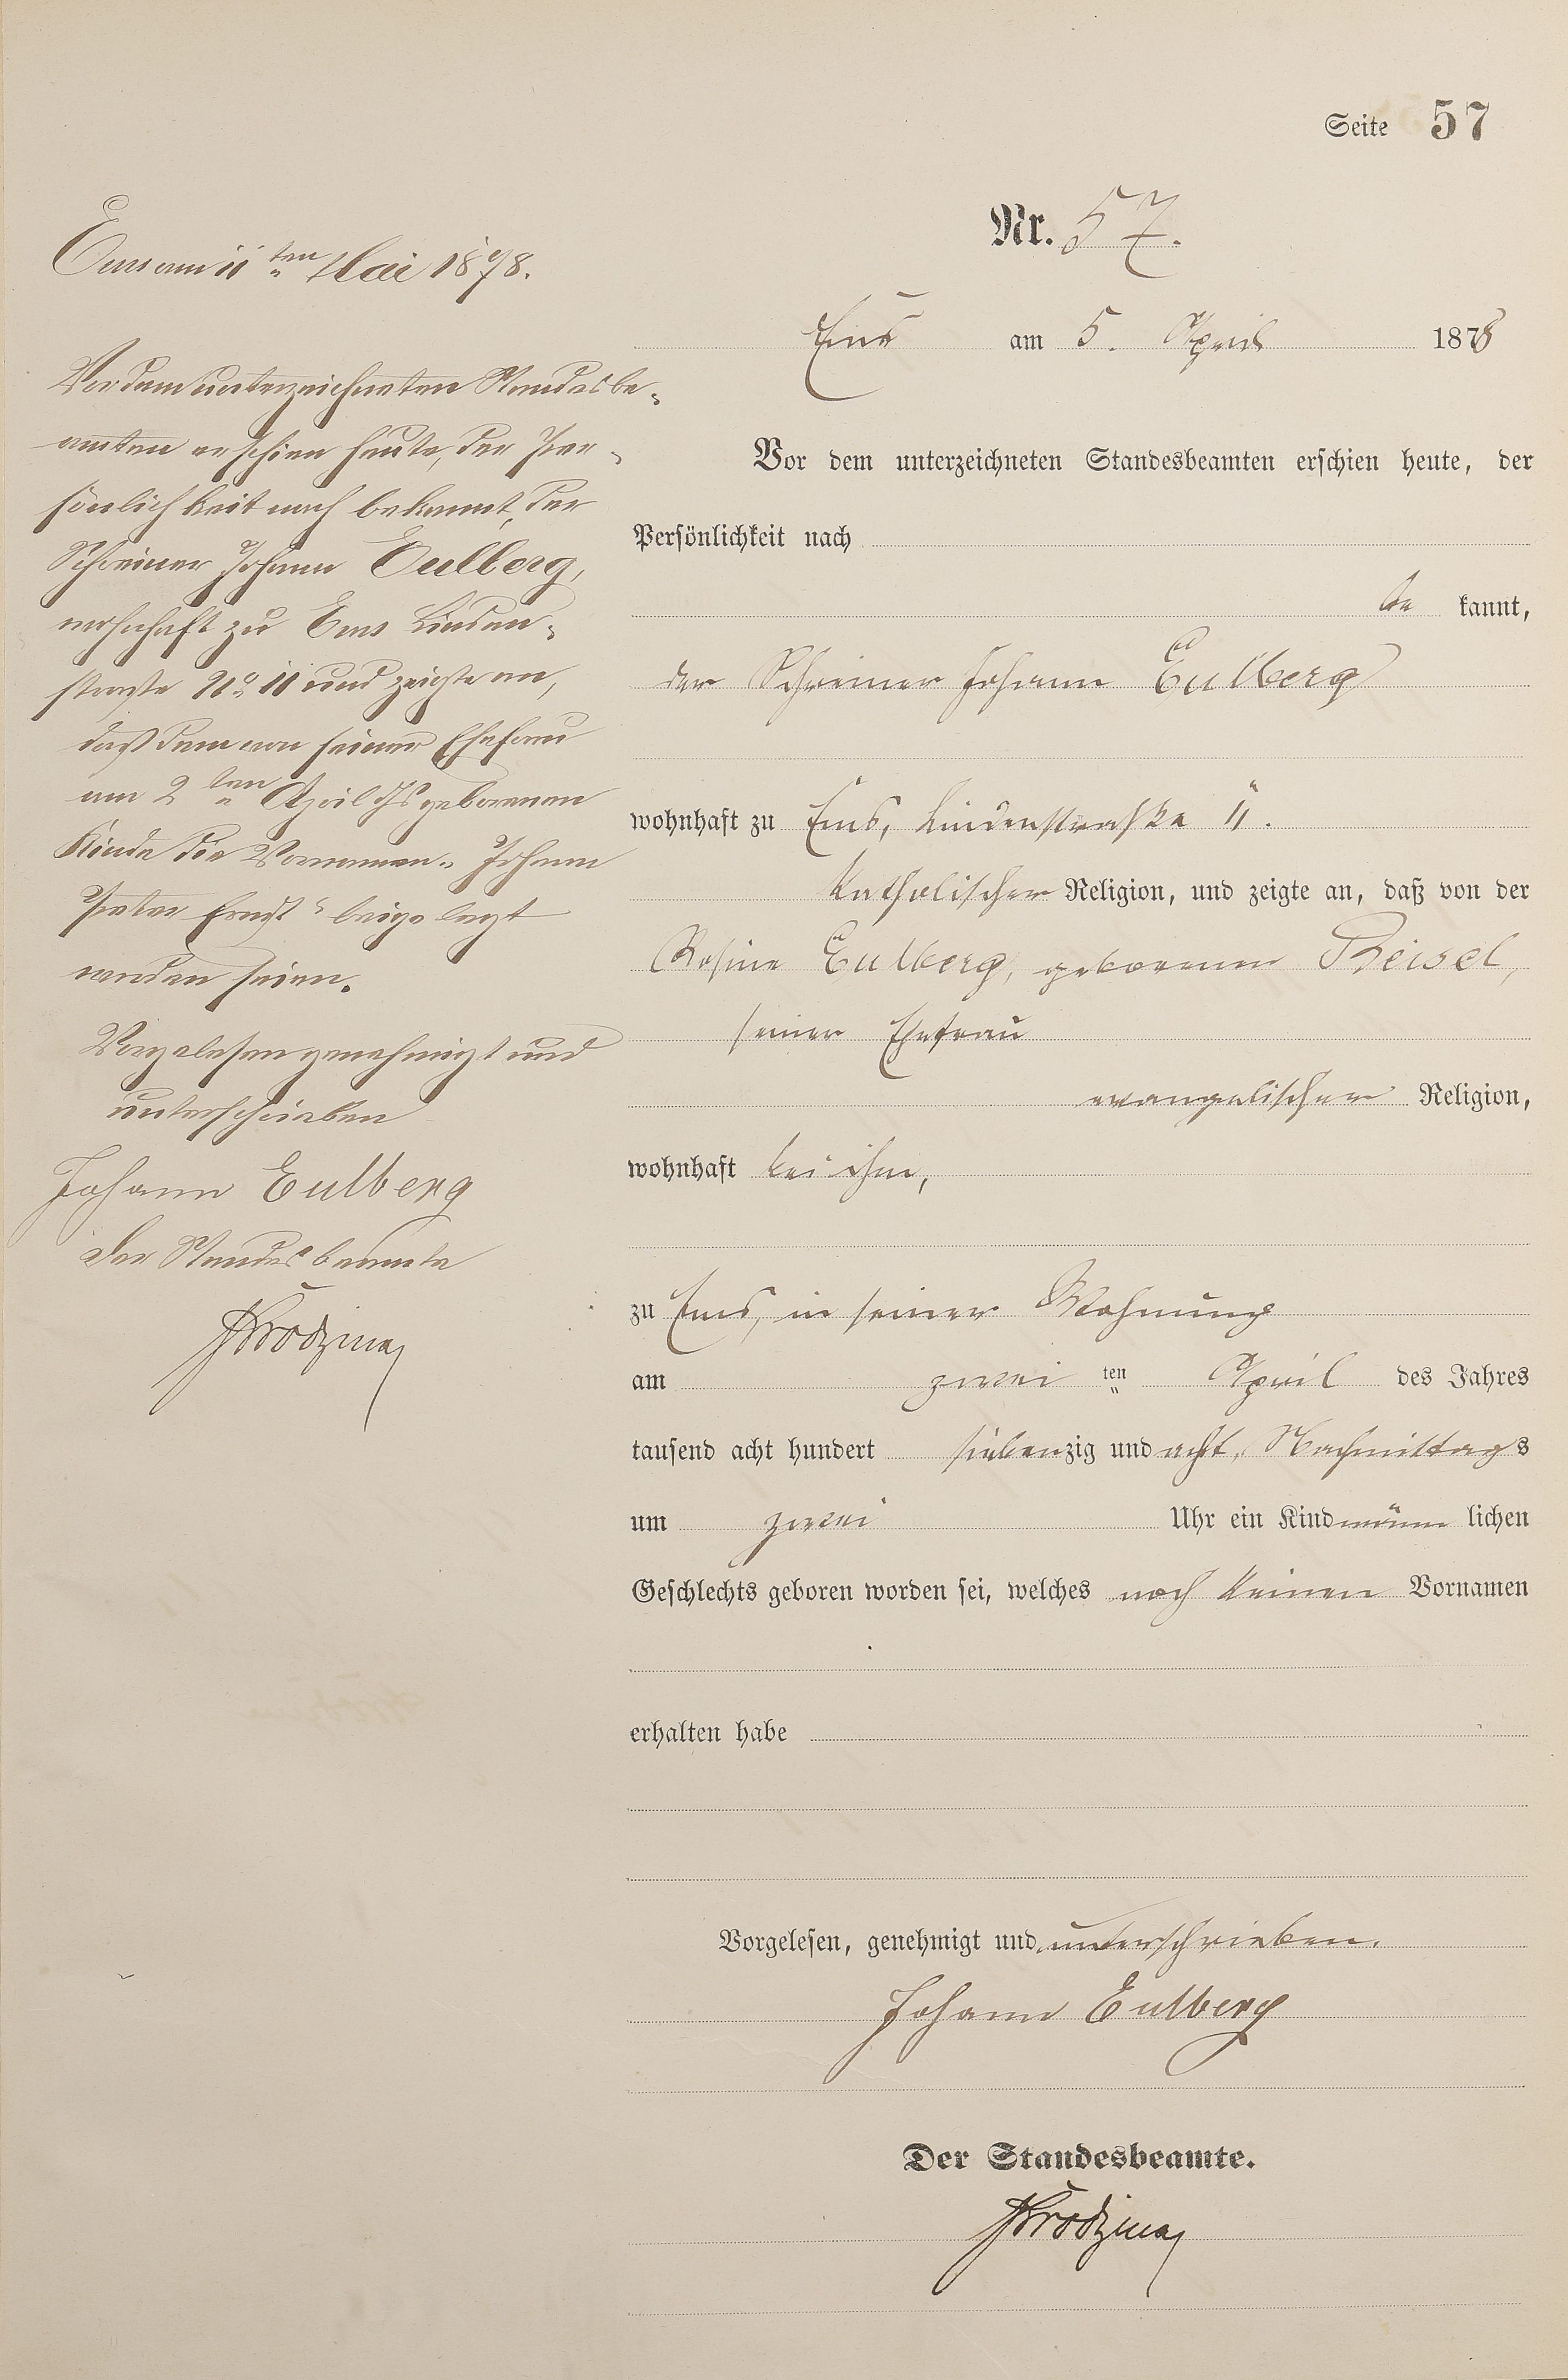 Seite 57
Nr. 57.
Ems am 5. April 1878
Vor dem unterzeichneten Standesbeamten erschien heute, der
Persönlichkeit nach
be kannt,
der Schreiner Johann Eulberg
wohnhaft zu Ems, Lindenstraße 11.
katholischer Religion, und zeigte an, daß von der
Rosine Eulberg, geborenen Beisel,
seiner Ehefrau
evangelischer Religion,
wohnhaft bei ihm,
zu Ems, in seiner Wohnung
am zwei ten April des Jahres
tausend acht hundert siebenzig und acht, Nachmittags
um zwei Uhr ein Kind männ lichen
Geschlechts geboren worden sei, welches noch keinen Vornamen
erhalten habe
Vorgelesen, genehmigt und unterschrieben.
Johann Eulberg
Der Standesbeamte.
Ems am 11ten Mai 1878.
Vor dem unterzeichneten Standesbe-
amten erschien heute, der Per-
sönlichkeit nach bekannt, der
Schreiner Johann Eulberg,
wohnhaft zu Ems Linden-
straße No 11 und zeigte an,
daß dem von seiner Ehefrau
am 2ten April Js geborenen
Kinde die Vornamen „Johann
Peter Ernst“ beigelegt
worden seien.
Vorgelesen genehmigt und
unterschrieben
Johann Eulberg
Der Standesbeamte